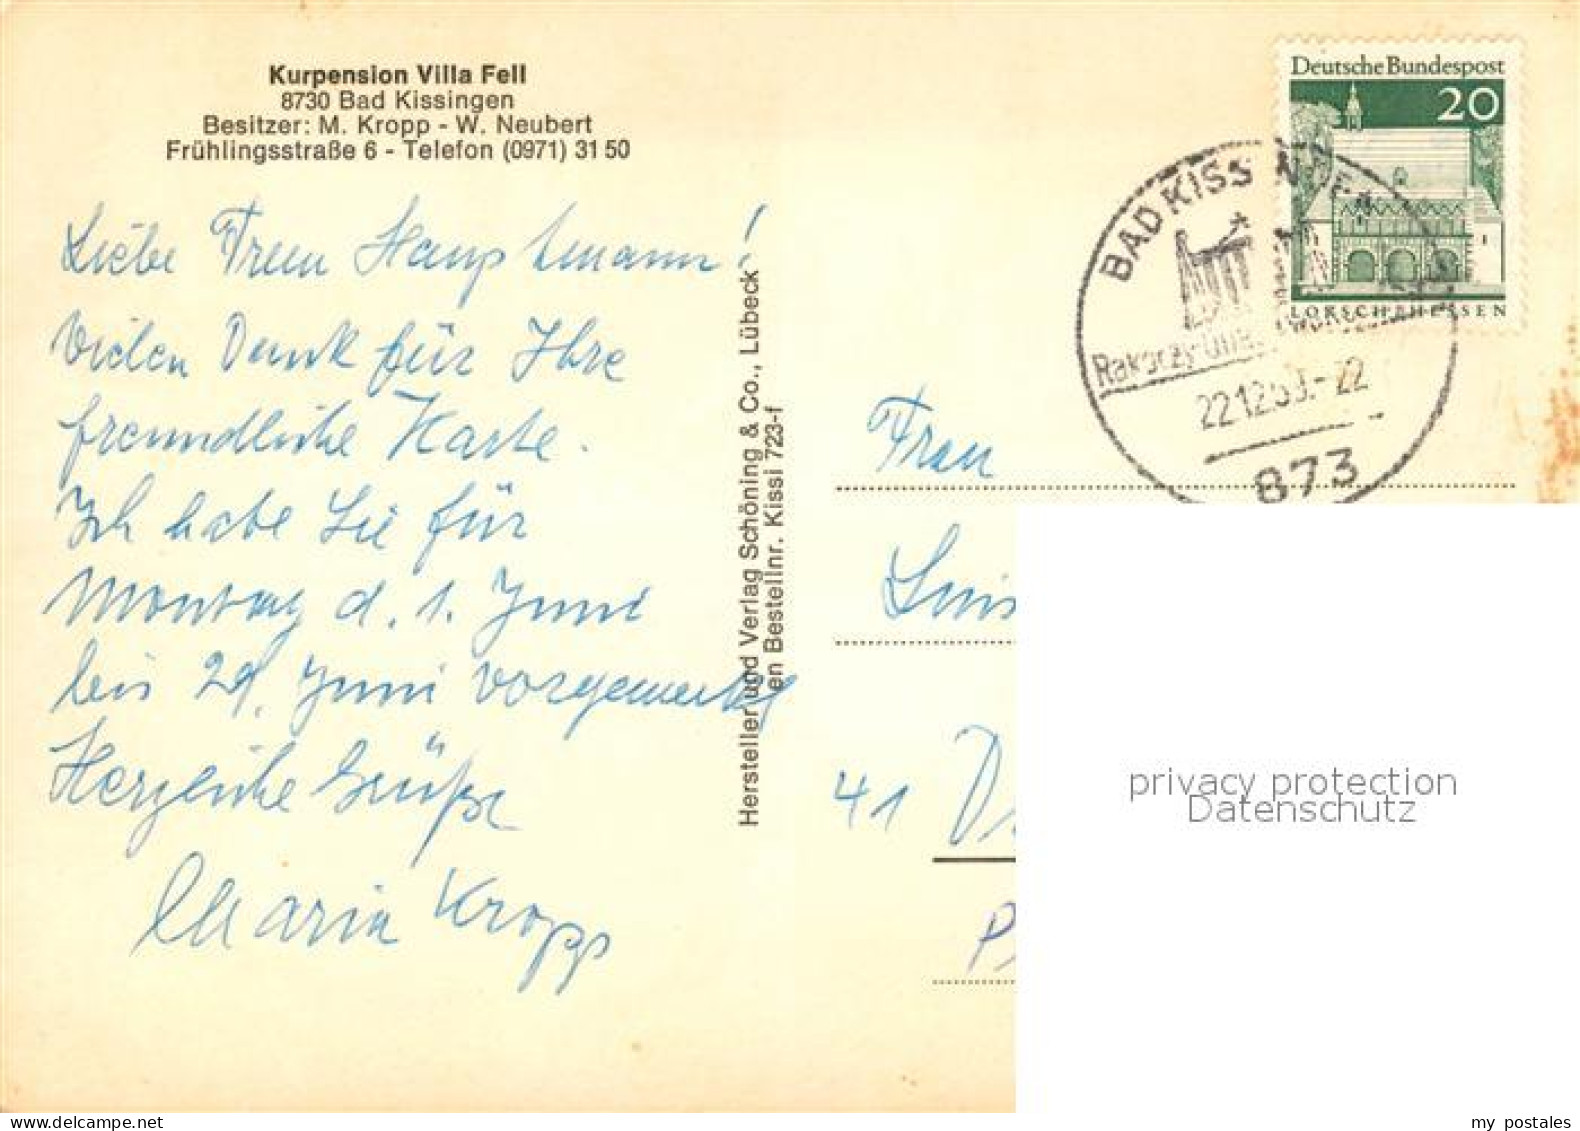 Kurpension Villa Fell
8730 Bad Kissingen
Besitzer: M. Kropp - W. Neubert
Frühlingsstraße 6 - Telefon (0971) 31 50
Liebe Frau Hauptmann!
Vielen Dank für Ihre
freundliche Karte.
Ich habe Sie für
Montag d. 1. Juni
bis 29. Juni vorgemerkt
Herzliche Grüße
Maria Kropp
Hersteller und Verlag Schöning & Co., Lübeck
en Bestellnr. Kissi 723-f
Deutsche Bundespost
20
LORSCH HESSEN
BAD KISSINGEN
Rakoczy-
22.12.69.-22
873
Frau
Luis
41 D
privacy protection
Datenschutz
delcampe.net
my postales